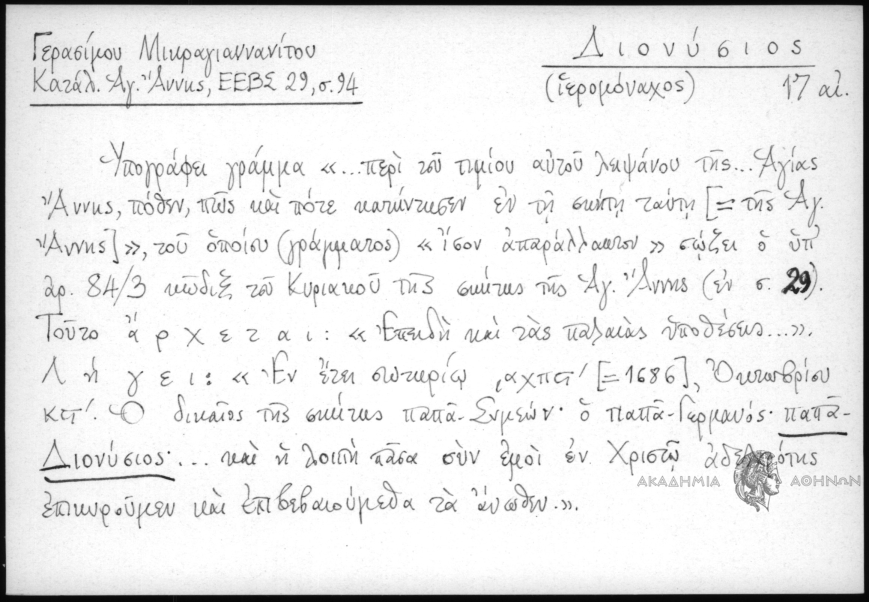 Γερασίμου Μικραγιαννανίτου
Κατάλ. Ἁγ. Ἄννης, ΕΕΒΣ 29, σ. 94
Διονύσιος
(ἱερομόναχος) 17 αἰ.
Ὑπογράφει γράμμα «...περὶ τοῦ τιμίου αὐτοῦ λειψάνου τῆς... Ἁγίας
Ἄννης, πόθεν, πῶς καὶ πότε κατήντησεν ἐν τῇ σκήτῃ ταύτῃ [= τῆς Ἁγ.
Ἄννης]», τοῦ ὁποίου (γράμματος) «ἴσον ἀπαράλλακτον» σῴζει ὁ ὑπ'
ἀρ. 84/3 κῶδιξ τοῦ Κυριακοῦ τῆς σκήτης τῆς Ἁγ. Ἄννης (ἐν σ. 29).
Τοῦτο ἄρχεται: «Ἐπειδὴ καὶ τὰς παλαιὰς ὑποθέσεις...».
Λήγει: «Ἐν ἔτει σωτηρίῳ ͵αχπϛ' [= 1686], Ὀκτωβρίου
κϛ'. Ὁ δικαῖος τῆς σκήτης παπᾶ-Συμεών· ὁ παπᾶ-Γερμανός· παπᾶ-
Διονύσιος·... καὶ ἡ λοιπὴ πᾶσα σὺν ἐμοὶ ἐν Χριστῷ ἀδελφότης
ἐπικυροῦμεν καὶ ἐπιβεβαιούμεθα τὰ ἄνωθεν.».
ΑΚΑΔΗΜΙΑ ΑΘΗΝΩΝ